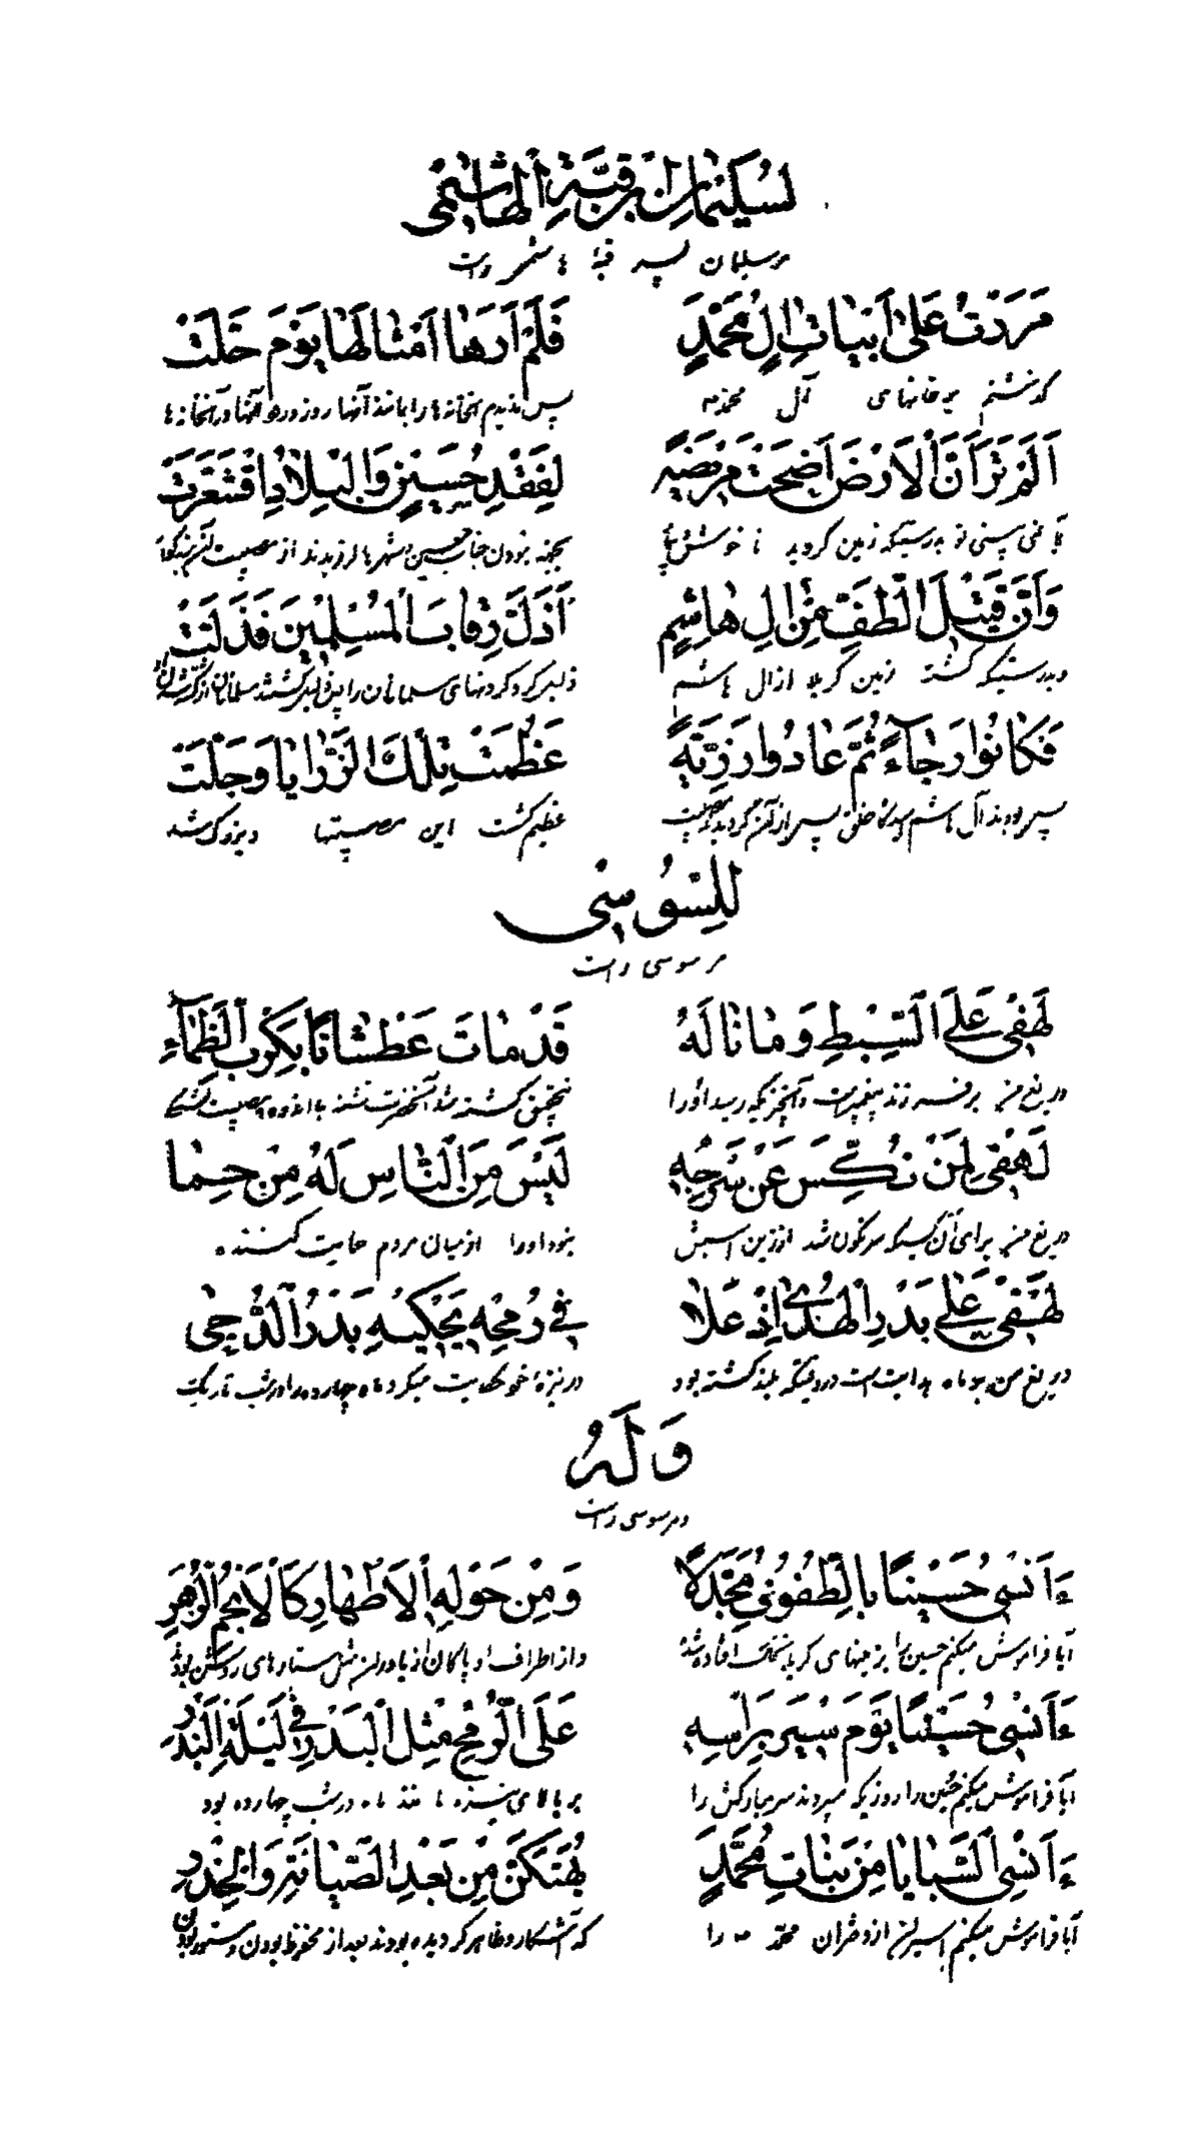 لِسُلَيْمَانَ ابْنِ قَبَّةِ الْهَاشِمِى
مر سلیمان پسر قبه هاشمی راست
مَرَرْتُ عَلىٰ اَبْيَاتِ اٰلِ مُحَمَّدٍ فَلَمْ اَرَهَا اَمْثَالَهَا يَوْمَ حَلَّتْ
گذشتم بر خانهای آل محمد پس ندیدم آنخانه ها را مانند آنها روز ورود آنها در آنخانه ها
اَلَمْ تَرَ اَنَّ الْاَرْضَ اَضْحَتْ مَرِيضَةً لِفَقْدِ حُسَيْنٍ وَالْبِلَادُ اقْشَعَرَّتْ
آیا نمی بینی تو بدرستیکه زمین گردید ناخوش بجهة نبودن جناب حسین و شهرها لرزیدند از مصیبت
وَاِنَّ قَتِيلَ الطَّفِّ مِنْ اٰلِ هَاشِمٍ اَذَلَّ رِقَابَ الْمُسْلِمِينَ فَذَلَّتْ
و بدرستیکه کشته زمین کربلا از ال هاشم ذلیل کرد گردنهای مسلمانان را پس ذلیل گشتند مسلمانان
فَكَانُوا رَجَاءً ثُمَّ عَادُوا رَزِيَّةً عَظُمَتْ تِلْكَ الرَّزَايَا وَجَلَّتْ
پس بودند آل هاشم امیدگاه خلق پس از آن گردیدند مصیبت عظیم گشت این مصیبتها و بزرگ شد
لِلسُّوسِى
مر سوسی راست
لَهْفِى عَلَى السِّبْطِ وَمَا نَالَهُ قَدْ مَاتَ عَطْشَانًا بِكَرْبِ الظَّمَاءِ
دریغ من بر فرزند پیغمبر است و آنچیزیکه رسید او را بتحقیق کشته شد آنحضرت تشنه با اندوه و مصیبت تشنگی
لَهْفِى لِمَنْ نُكِّسَ عَنْ سَرْجِهِ لَيْسَ مِنَ النَّاسِ لَهُ مِنْ حِمَا
دریغ من برای آن کسیکه سرنگون شد از زین اسبش نبود او را از میان مردم حمایت کننده
لَهْفِى عَلىٰ بَدْرِ الْهُدىٰ اِذْ عَلَا فِى رُمْحِهِ يَحْكِيهِ بَدْرُ الدُّجىٰ
دریغ من بر ماه هدایت است در وقتیکه بلند گشته بود در نیزهٔ خود حکایت میکرد ماه چهارده او را در شب تاریک
وَلَهُ
و مر سوسی راست
ءَاَنْسىٰ حُسَيْنًا بِالطُّفُوفِ مُجَدَّلًا وَمِنْ حَوْلِهِ الْاَطْهَارُ كَالْاَنْجُمِ الزُّهْرِ
آیا فراموش میکنم حسین را بزمینهای کربلا بخاک افتاده شده و از اطراف او پاکان مثل ستارهای روشن بودند
ءَاَنْسىٰ حُسَيْنًا يَوْمَ سِيرَ بِرَاْسِهِ عَلَى الرُّمْحِ مِثْلَ الْبَدْرِ فِى لَيْلَةِ الْبَدْرِ
آیا فراموش میکنم حسین را روزیکه میبردند سر مبارکش را بر بالای نیزه مانند ماه در شب چهارده بود
ءَاَنْسىٰ السَّبَايَا مِنْ بَنَاتِ مُحَمَّدٍ يُهَتَّكْنَ مِنْ بَعْدِ الصِّيَانَةِ وَالْخِدْرِ
آیا فراموش میکنم اسیران از دختران محمد را که آشکار و ظاهر کردیده بودند بعد از محفوظ بودن و مستور بودن